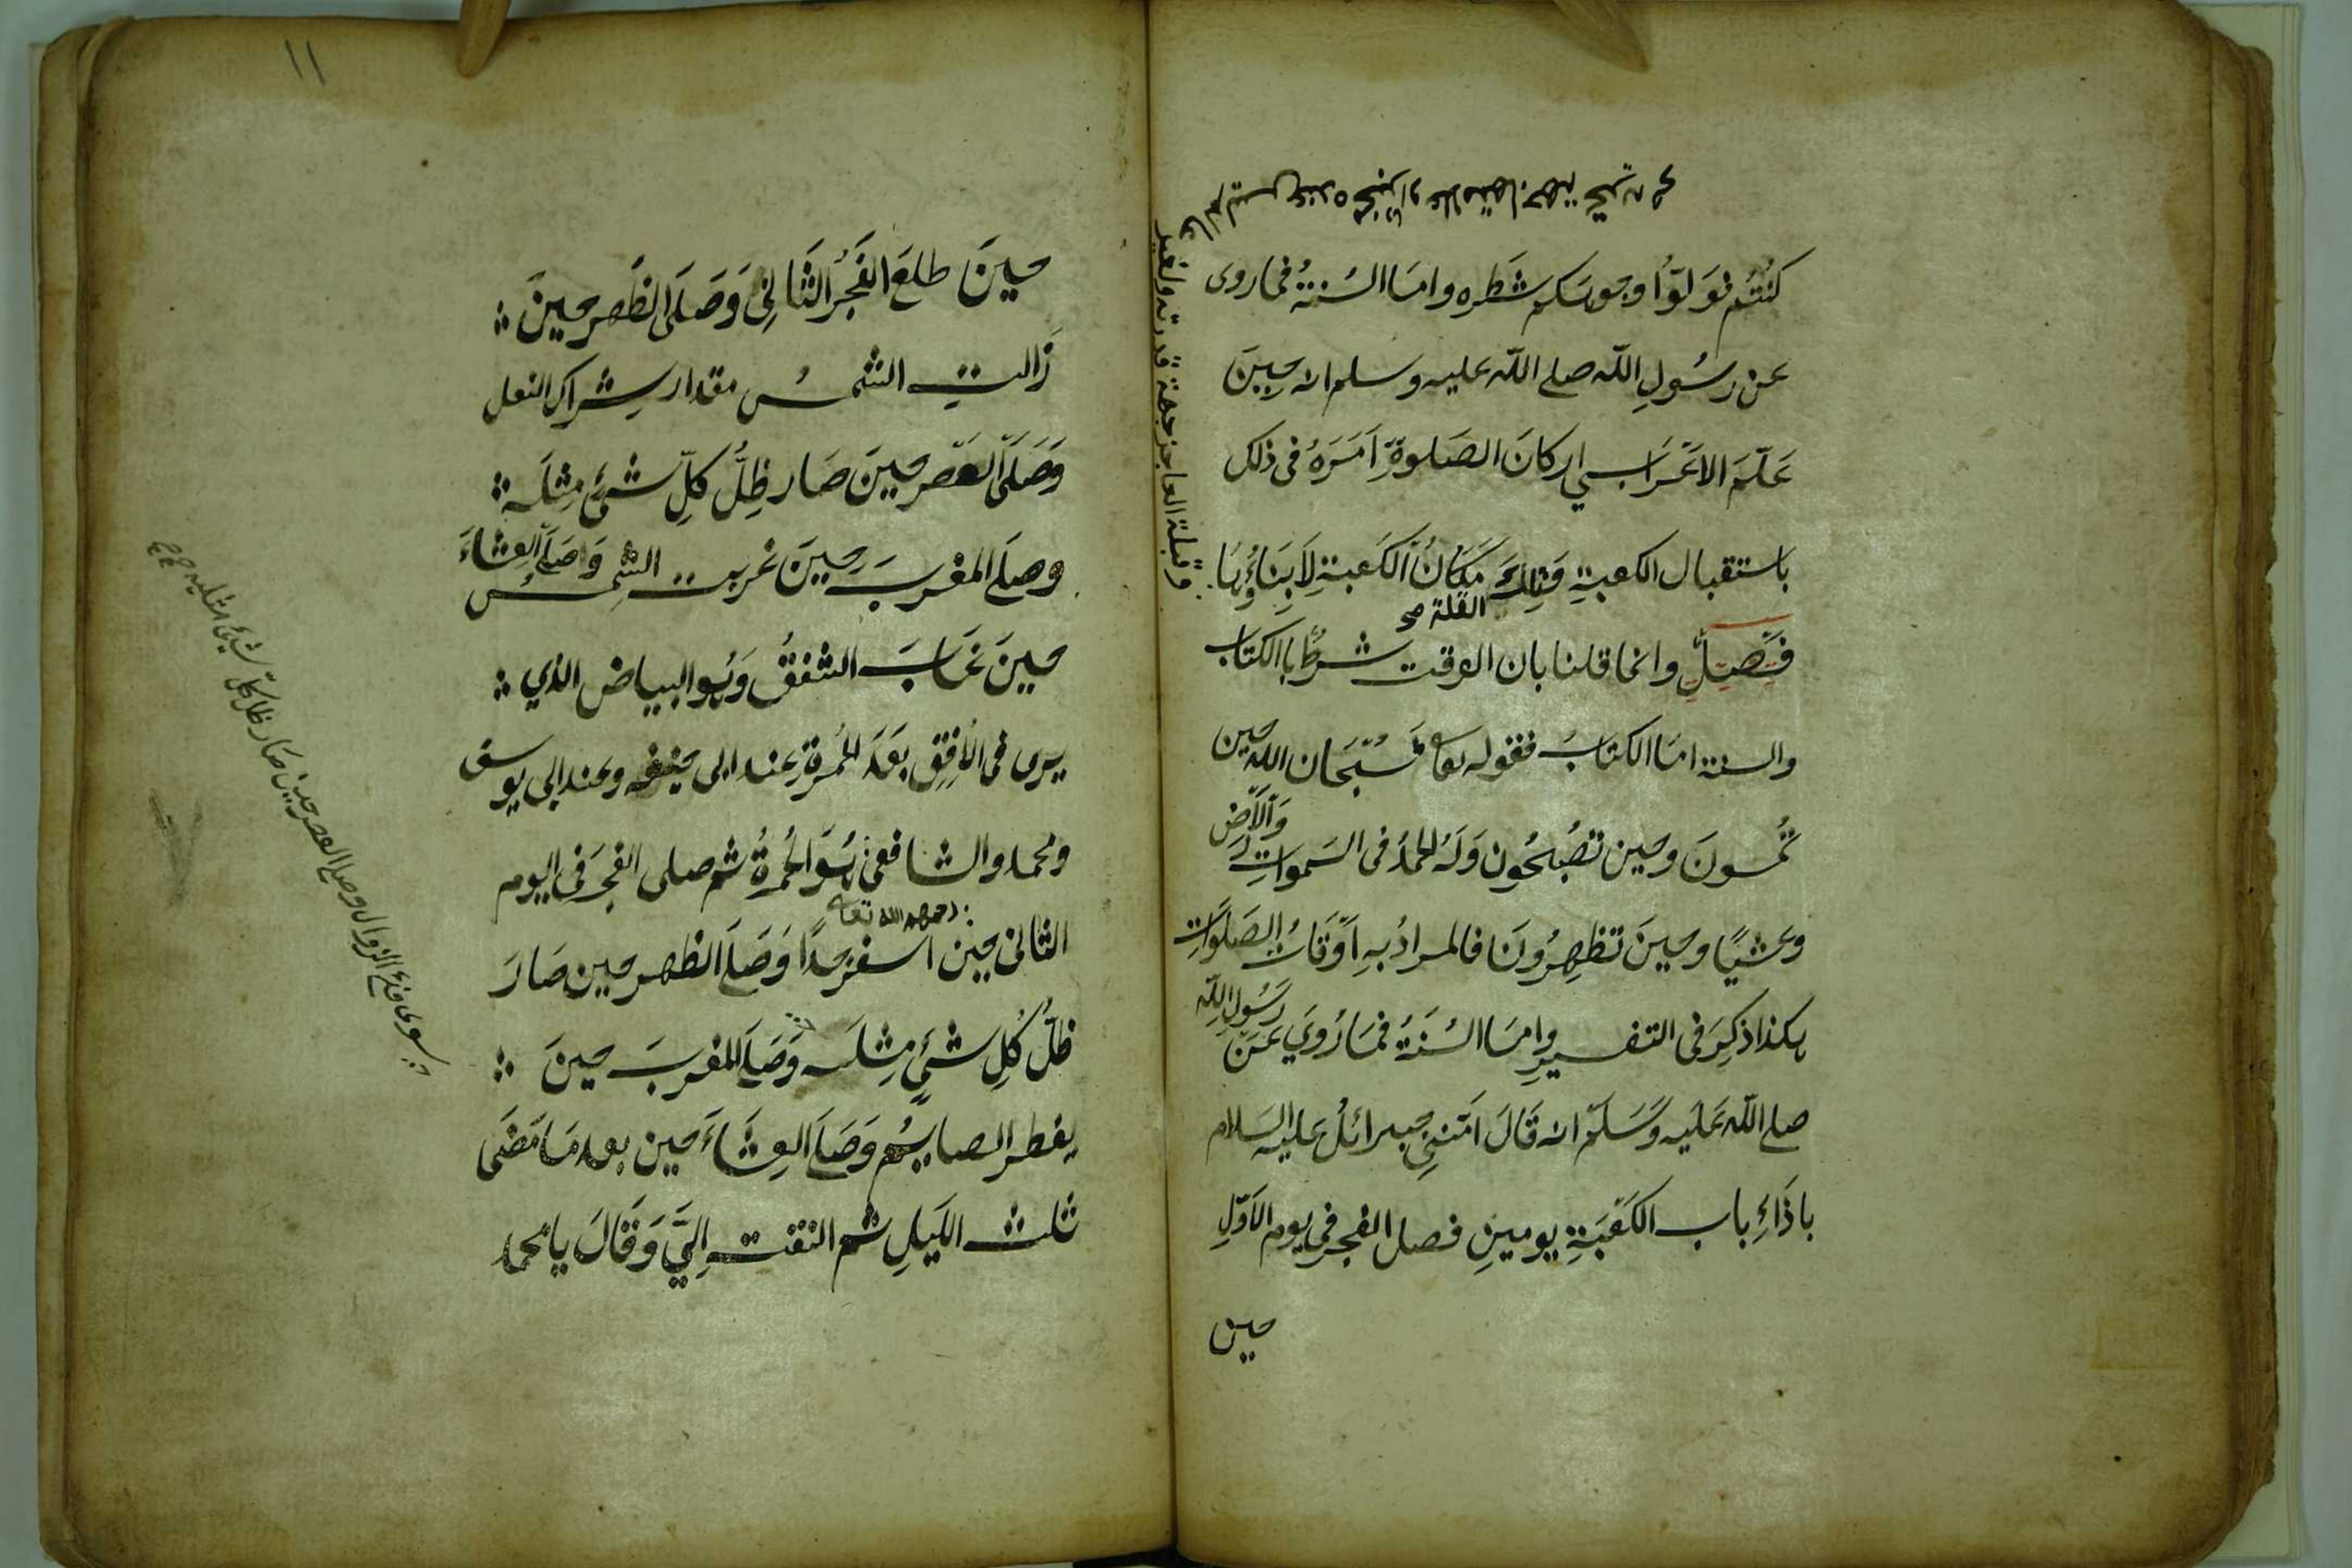 كنتم فولوا وجوهكم شطره واما السنة فما روى
عن رسول الله صلى الله عليه وسلم انه حين
علم الاعرابي اركان الصلوة امره في ذلك
باستقبال الكعبة وتلك مكان الكعبة لا بناؤها
القبلة صح
فصل وانما قلنا بان الوقت شرط بالكتاب
والسنة اما الكتاب فقوله تعا فسبحان الله حين
تمسون وحين تصبحون وله الحمد في السموات والارض
وعشيا وحين تظهرون فالمراد به اوقات الصلوات
هكذا ذكر في التفسير واما السنة فما روي عن رسول الله
صلى الله عليه وسلم انه قال امني جبرائل عليه السلام
باذاء باب الكعبة يومين فصل الفجر في يوم الاول
حين
وقبلة العاجز جهة قدرته ولغير
١١
حين طلع الفجر الثاني وصلى الظهر حين
زالت الشمس مقدار شراك النعل
وصلى العصر حين صار ظل كل شئ مثله
وصلى المغرب حين غربت الشمس وصلى العشاء
حين غاب الشفق وهو البياض الذي
يرى في الافق بعد الحمرة عند ابى حنيفه وعند ابي يوسف
ومحمد والشافعي هو الحمرة ثم صلى الفجر في اليوم
رحمهم الله تعا
الثاني حين اسفر جدا وصلى الظهر حين صار
ظل كل شئ مثله وصلى المغرب حين
يفطر الصايم وصلى العشاء حين بعد ما مضى
ثلث الليل ثم التفت الي وقال يا محمد
سوى فئ الزوال وصلى العصر حين صار ظل كل شئ مثليه